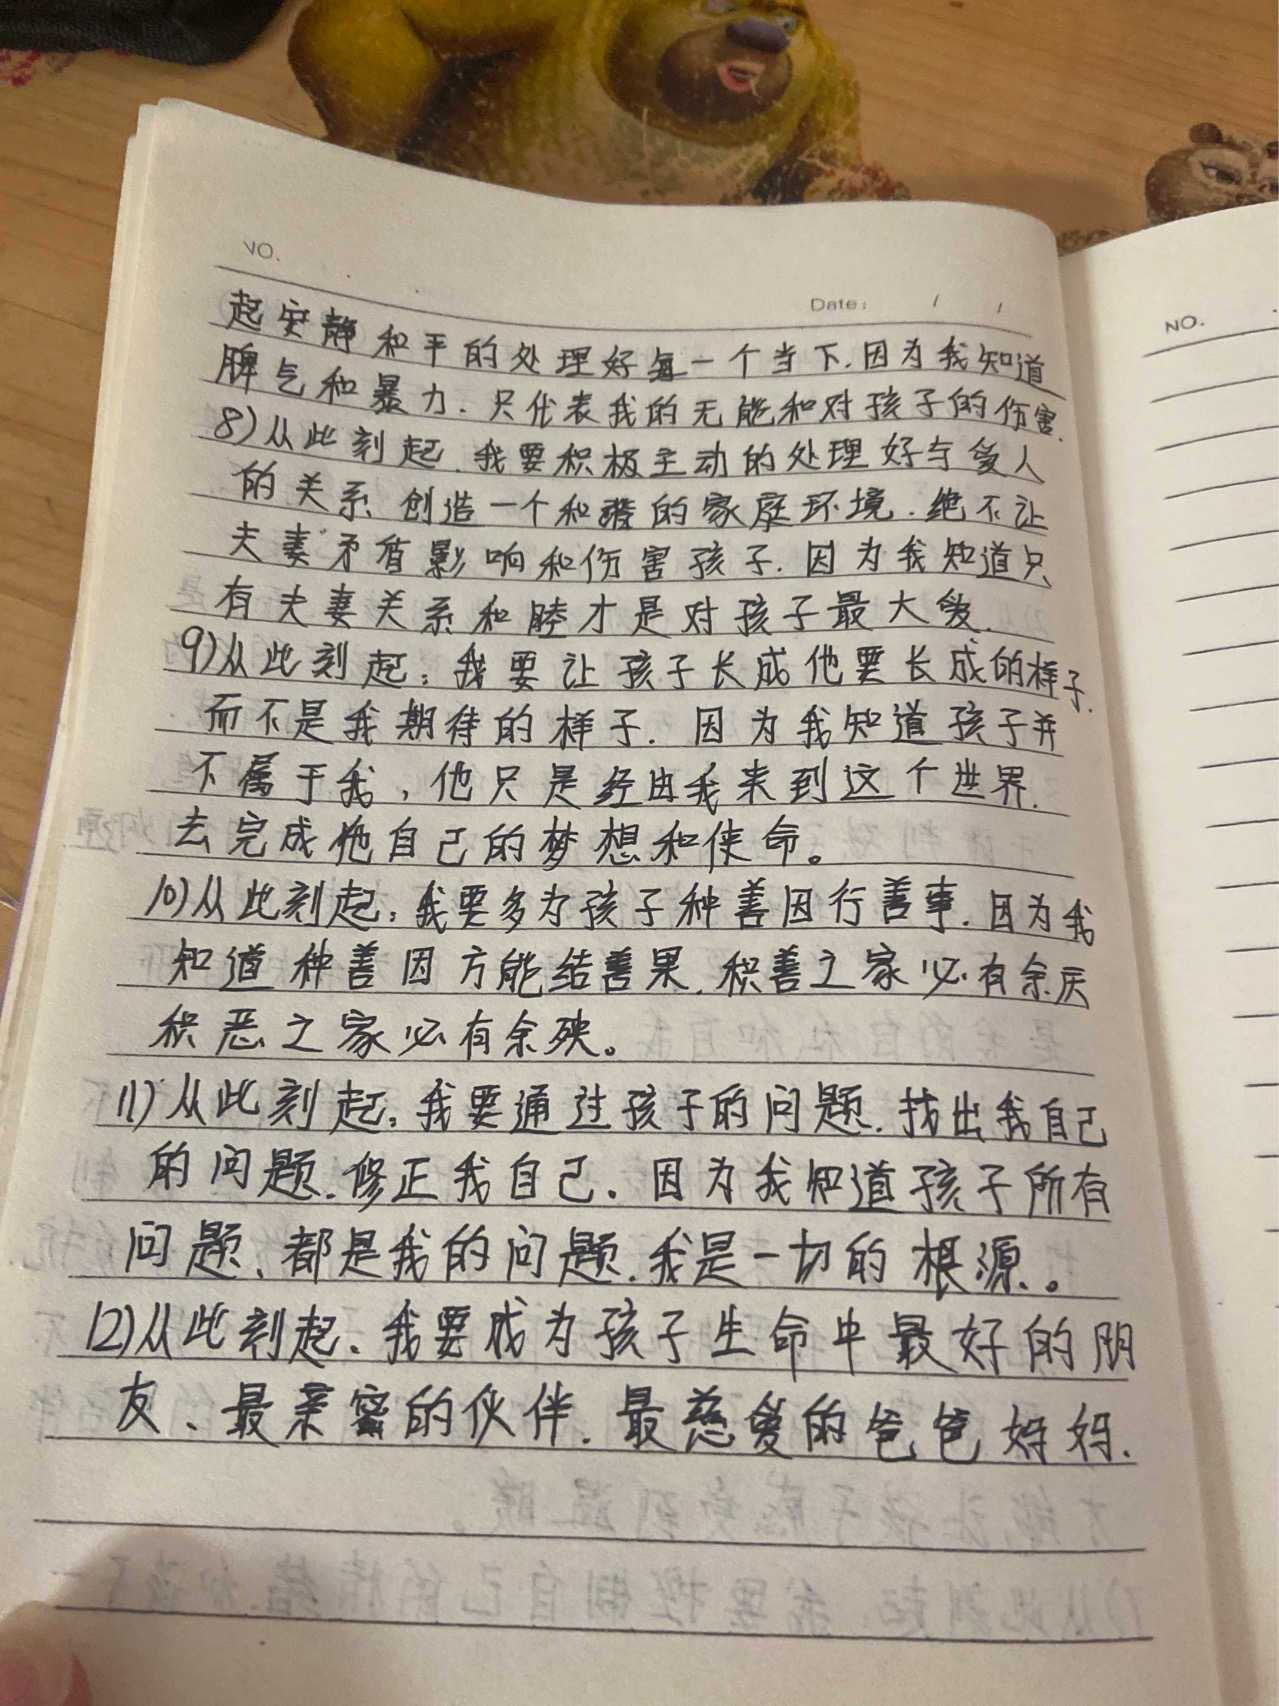 NO.
Date: / /
起安静和平的处理好每一个当下.因为我知道
脾气和暴力.只代表我的无能和对孩子的伤害.
8)从此刻起.我要积极主动的处理好与爱人
的关系 创造一个和谐的家庭环境.绝不让
夫妻矛盾影响和伤害孩子.因为我知道只
有夫妻关系和睦才是对孩子最大爱.
9)从此刻起:我要让孩子长成他要长成的样子.
而不是我期待的样子.因为我知道孩子并
不属于我,他只是经由我来到这个世界.
去完成他自己的梦想和使命。
10)从此刻起:我要多为孩子种善因行善事.因为我
知道种善因方能结善果.积善之家必有余庆
积恶之家必有余殃。
11)从此刻起:我要通过孩子的问题.找出我自己
的问题.修正我自己.因为我知道孩子所有
问题、都是我的问题.我是一切的根源.。
12)从此刻起.我要成为孩子生命中最好的朋
友、最亲密的伙伴.最慈爱的爸爸妈妈.
NO.